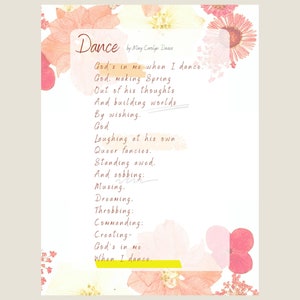 Dance by Mary Carolyn Davies
God's in me when I dance.
God, making Spring
Out of his thoughts
And building worlds
By wishing.
God
Laughing at his own
Queer fancies.
Standing awed.
And sobbing.
Musing.
Dreaming.
Throbbing.
Commanding.
Creating-
God's in me
When I dance.